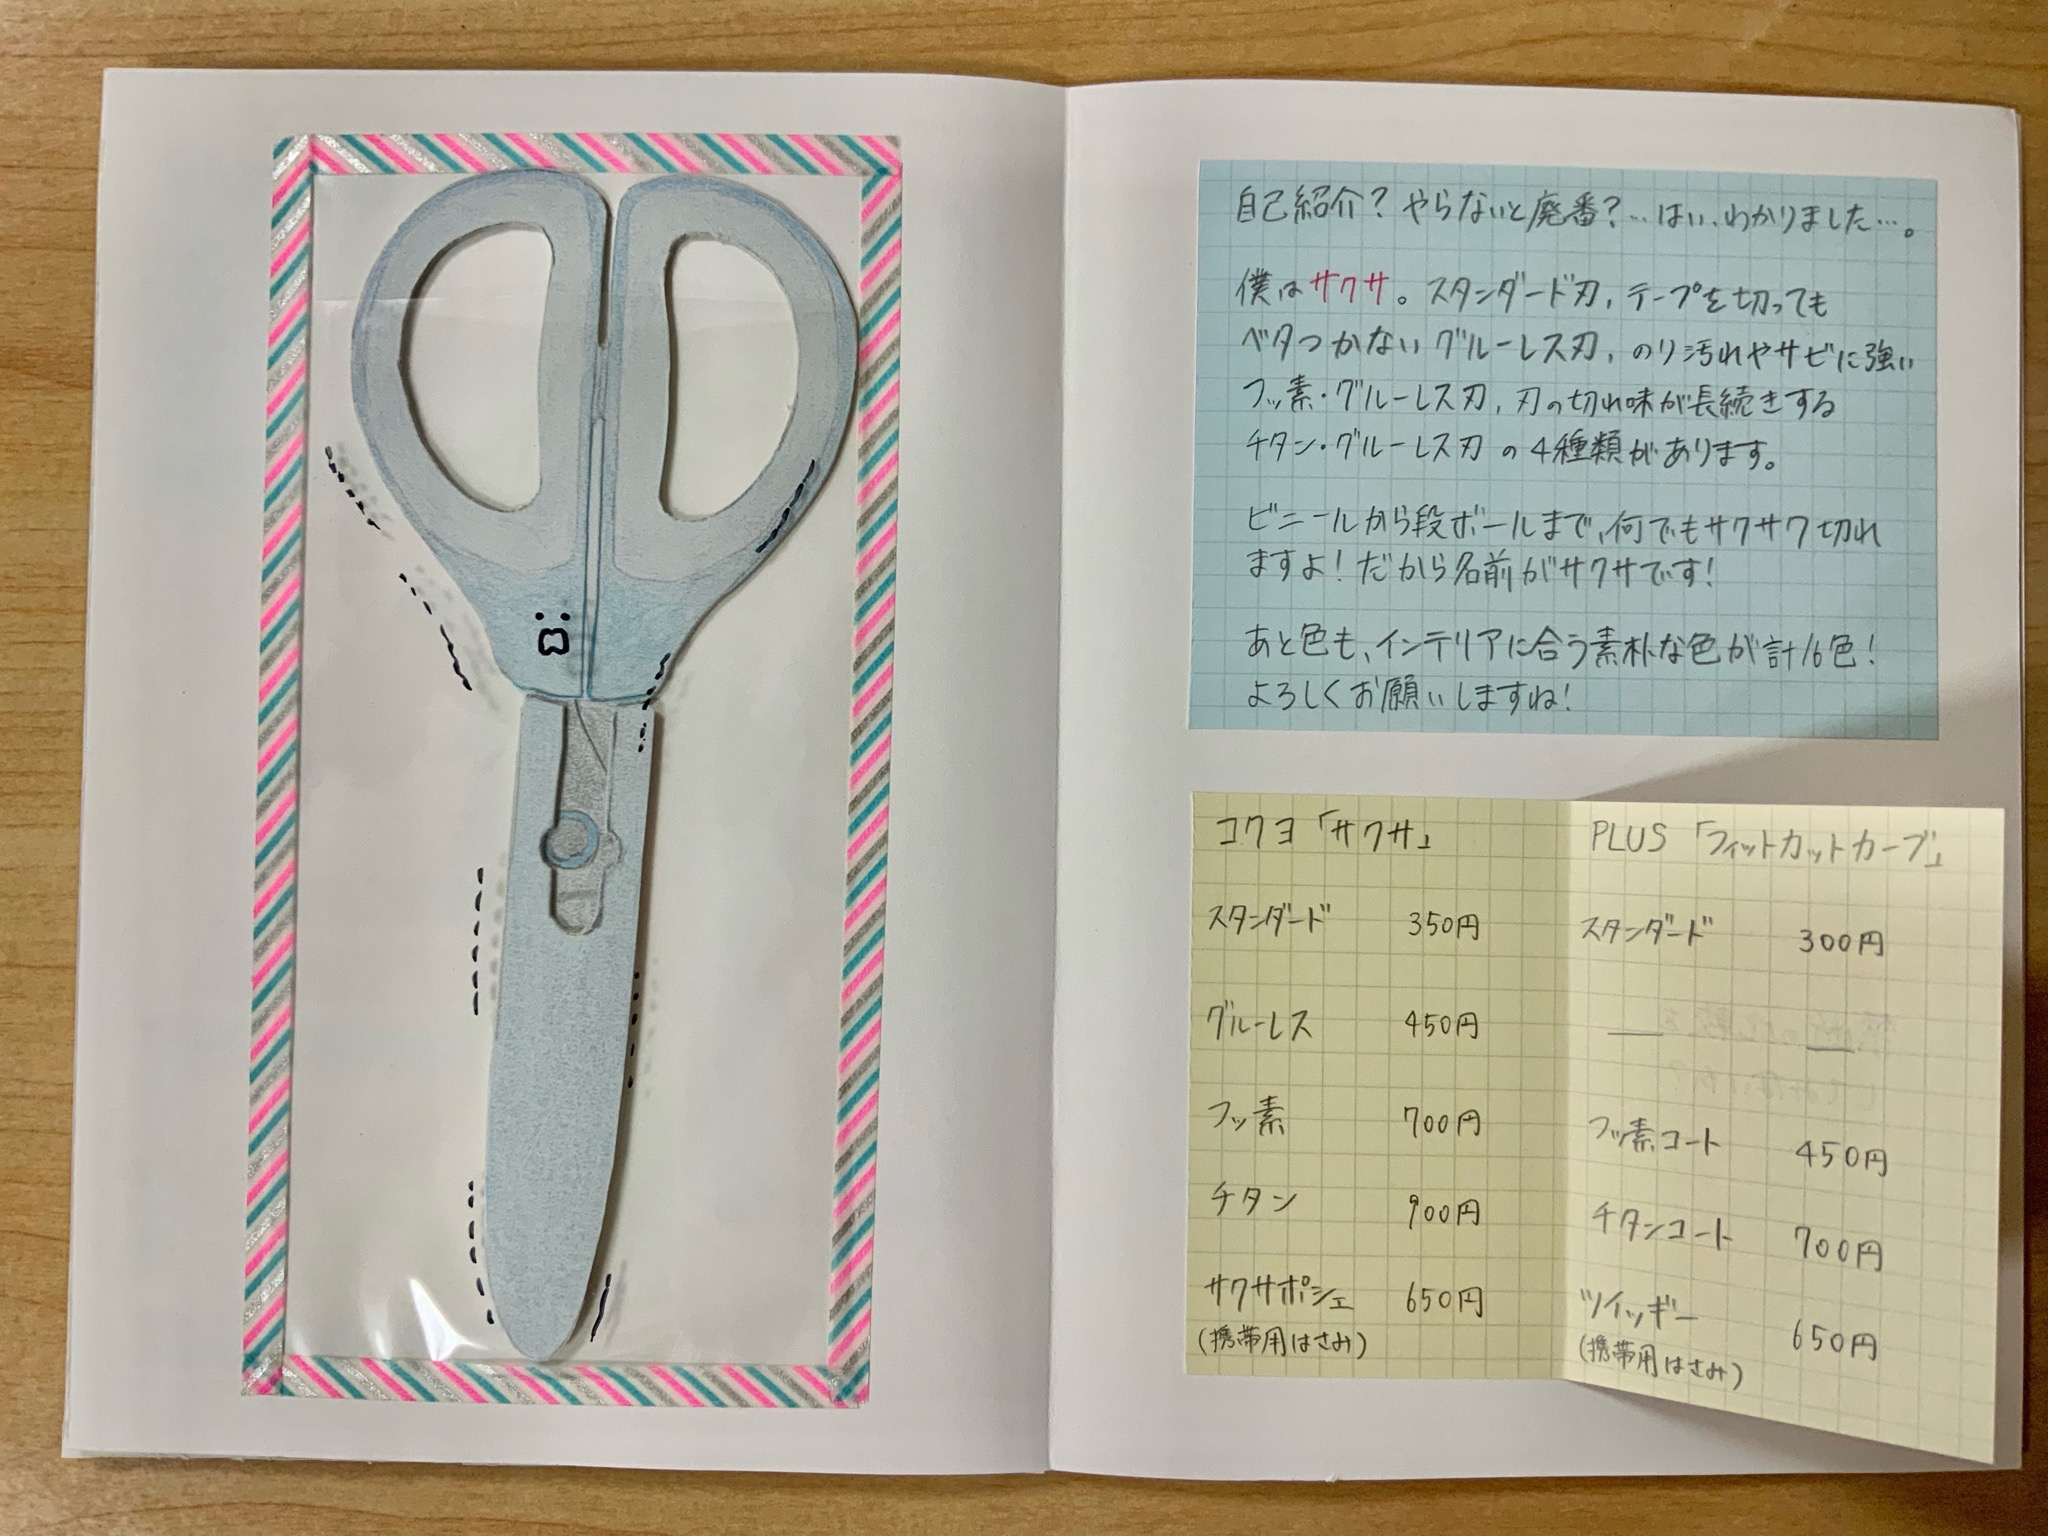 自己紹介？やらないと廃番？…はい、わかりました…。
僕はサクサ。スタンダード刃，テープを切っても
ベタつかないグルーレス刃，のり汚れやサビに強い
フッ素・グルーレス刃，刃の切れ味が長続きする
チタン・グルーレス刃の4種類があります。
ビニールから段ボールまで、何でもサクサク切れ
ますよ！だから名前がサクサです！
あと色も、インテリアに合う素朴な色が計16色！
よろしくお願いしますね！
コクヨ「サクサ」
スタンダード 350円
グルーレス 450円
フッ素 700円
チタン 900円
サクサポシェ 650円
(携帯用はさみ)
PLUS「フィットカットカーブ」
スタンダード 300円
フッ素コート 450円
チタンコート 700円
ツイッギー 650円
(携帯用はさみ)